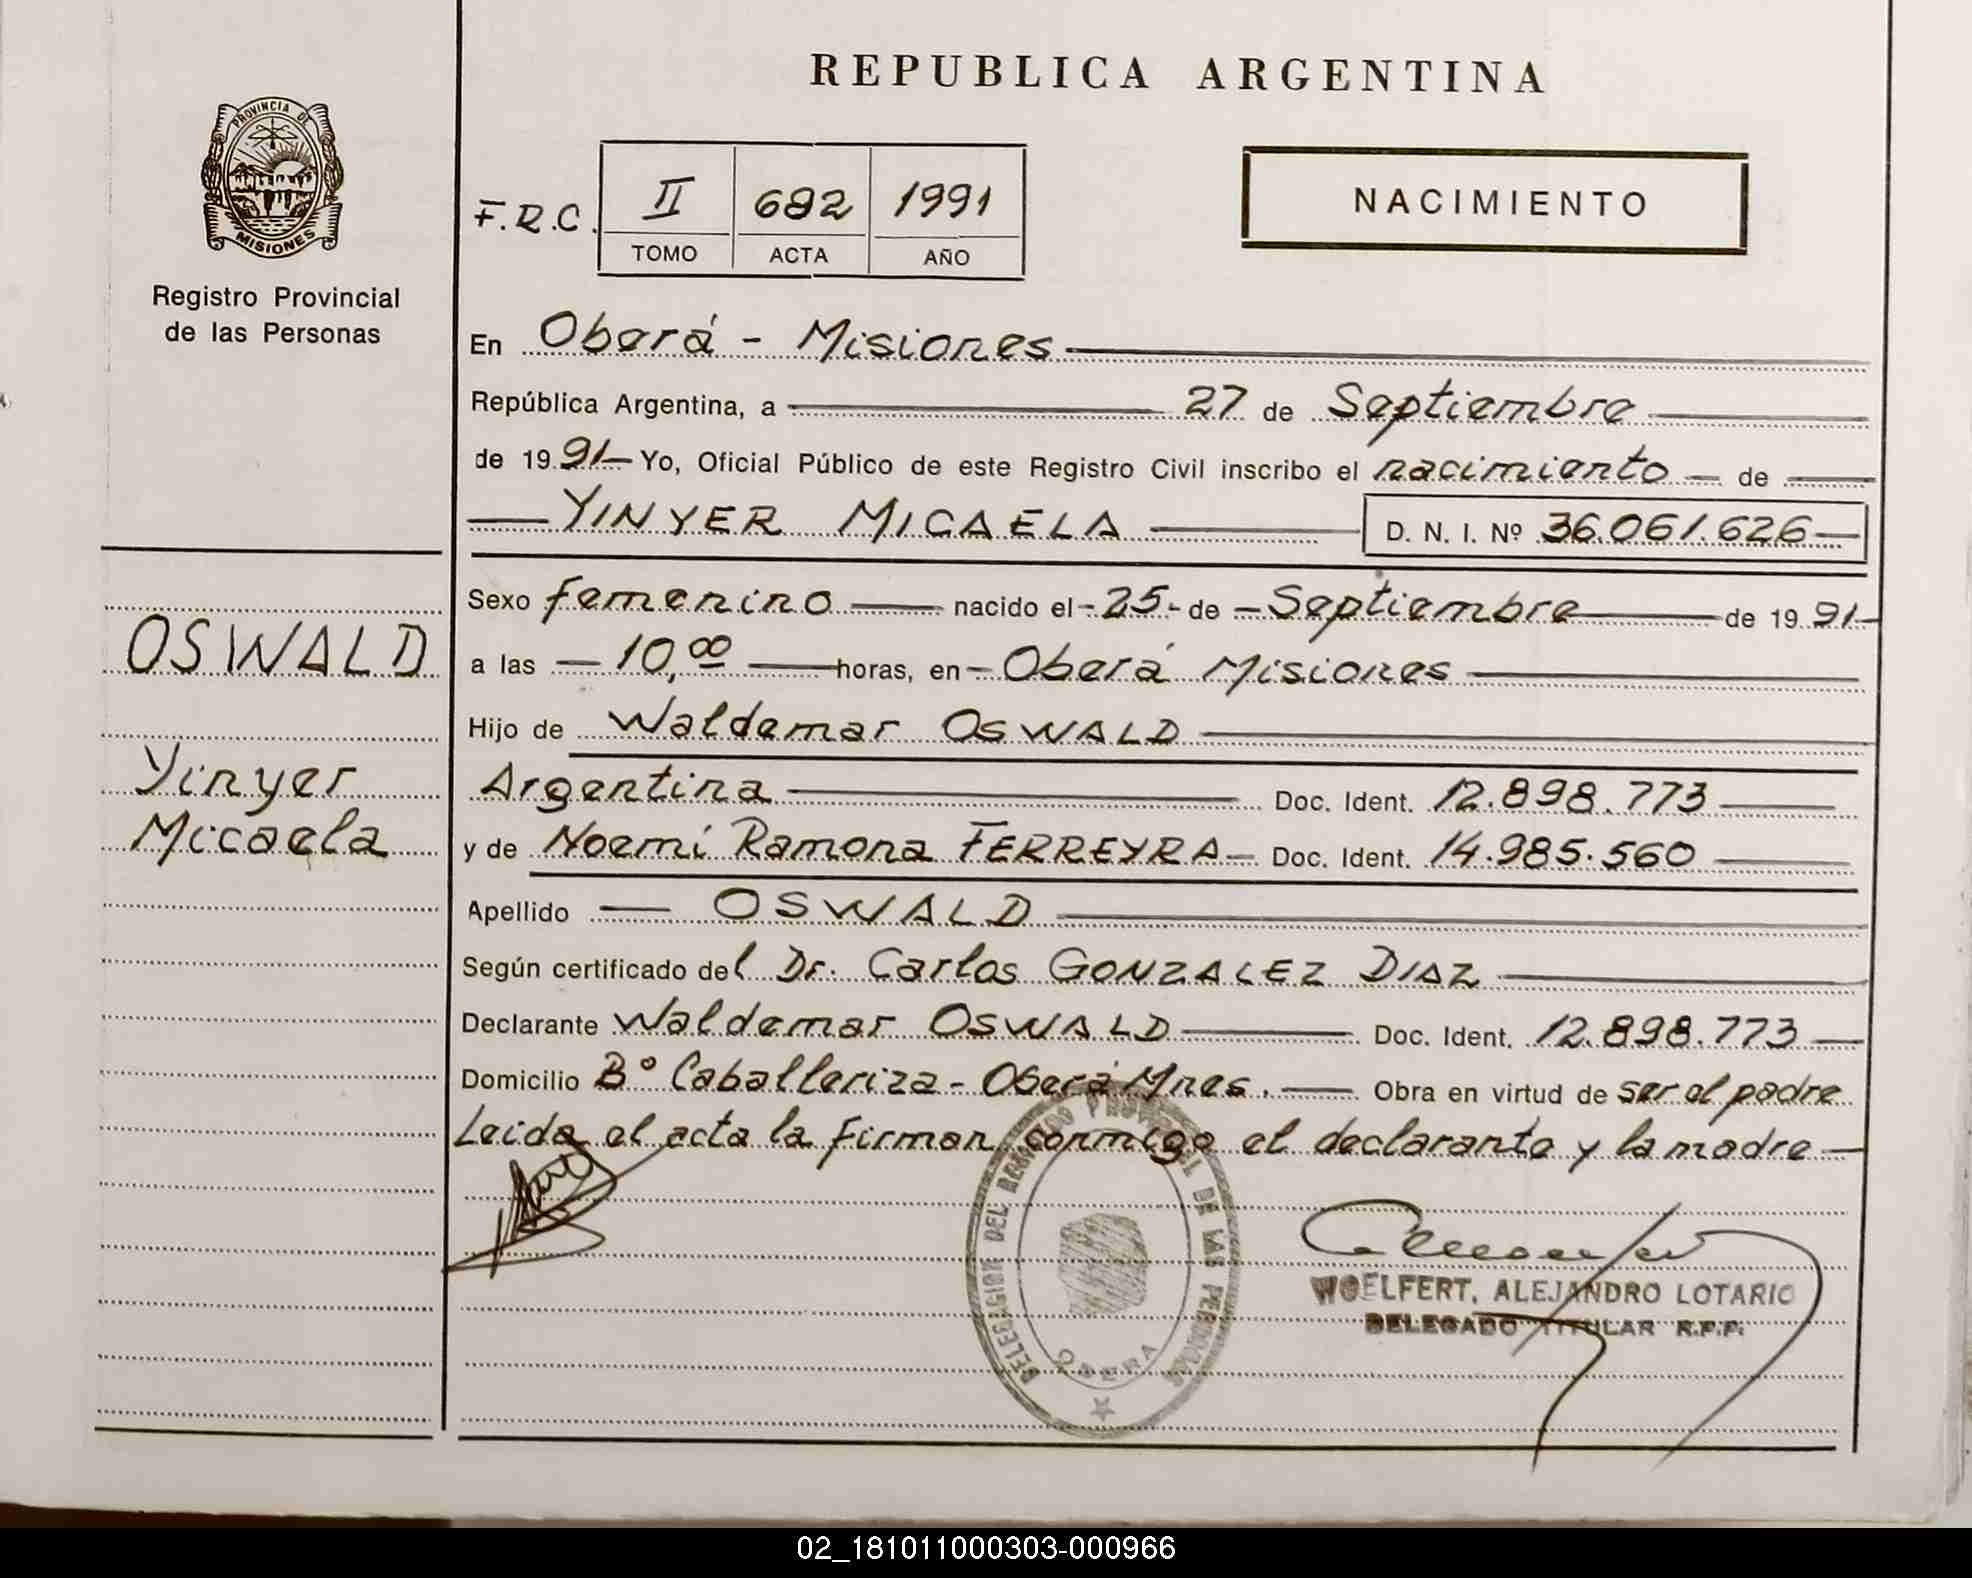 REPUBLICA ARGENTINA
PROVINCIA DE
MISIONES
Registro Provincial
de las Personas
F.R.C. II 682 1991
TOMO ACTA AÑO
NACIMIENTO
En Oberá - Misiones
República Argentina, a 27 de Septiembre
de 19 91 Yo, Oficial Público de este Registro Civil inscribo el nacimiento de
YINYER MICAELA D. N. I. Nº 36.061.626
Sexo femenino nacido el 25 de Septiembre de 19 91
a las 10,00 horas, en Oberá Misiones
Hijo de Waldemar OSWALD
Argentina Doc. Ident. 12.898.773
y de Noemí Ramona FERREYRA Doc. Ident. 14.985.560
Apellido OSWALD
Según certificado del Dr. Carlos GONZALEZ DIAZ
Declarante Waldemar OSWALD Doc. Ident. 12.898.773
Domicilio Bº Caballeriza - Oberá Mnes. Obra en virtud de ser el padre
Leida el acta la firman conmigo el declarante y la madre
OSWALD
Yinyer
Micaela
DELEGACION DEL REGISTRO PROVINCIAL DE LAS PERSONAS
OBERA
WOELFERT, ALEJANDRO LOTARIO
DELEGADO TITULAR R.P.P.
02_181011000303-000966